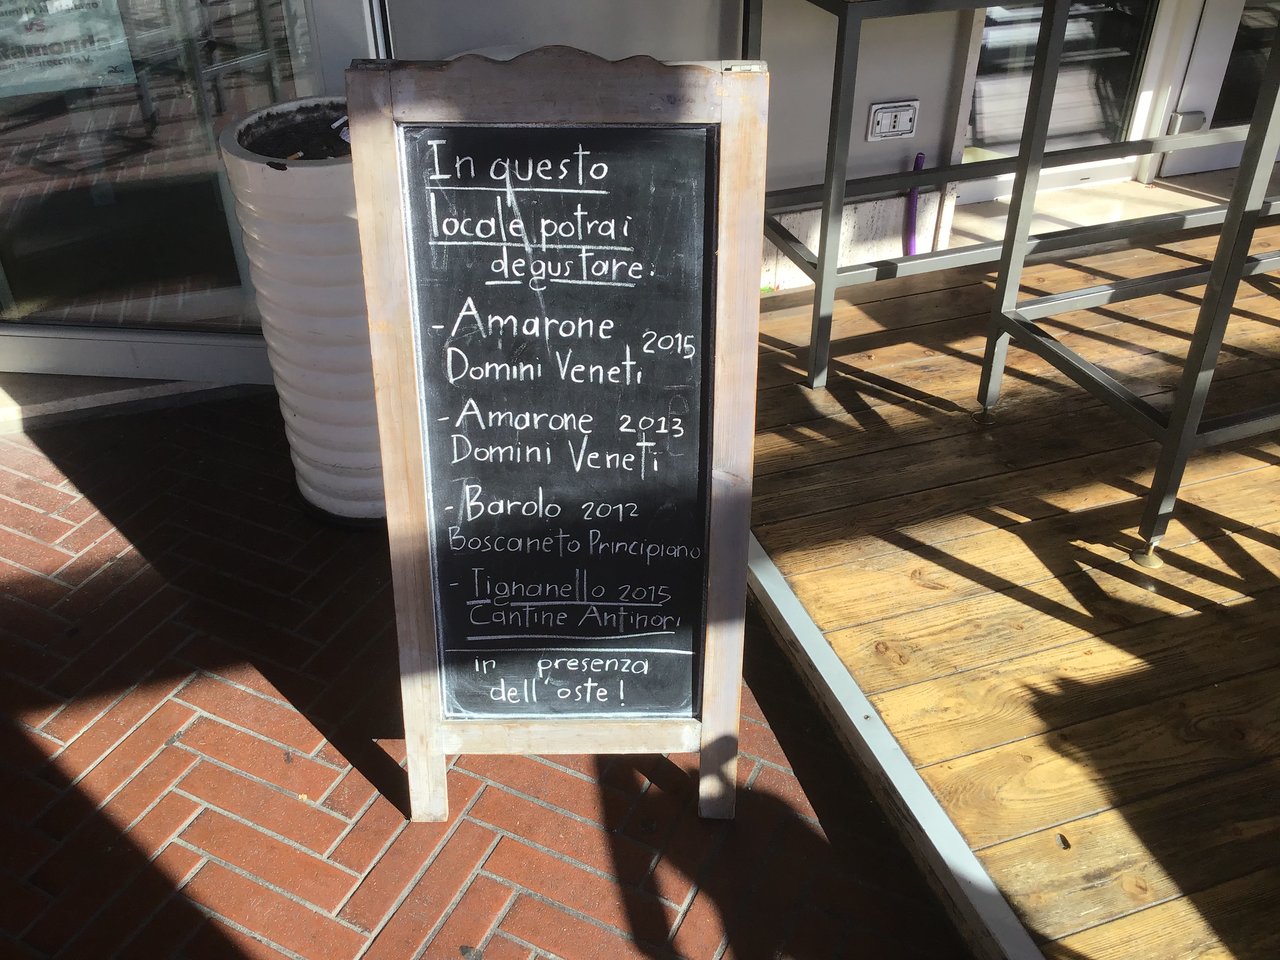 In questo
locale potrai
degustare:
- Amarone 2015
Domini Veneti
- Amarone 2013
Domini Veneti
- Barolo 2012
Boscaneto Principiano
- Tignanello 2015
Cantine Antinori
in presenza
dell'oste!